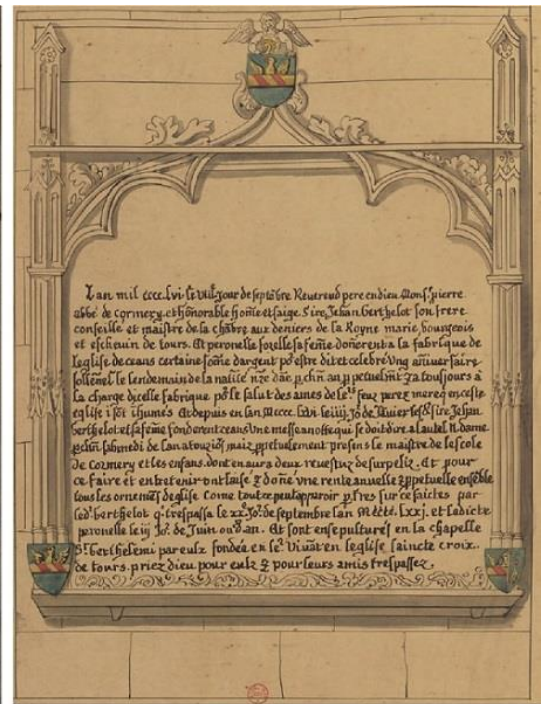 Lan mil cccc. lvi le viiie. Jour de septēbre Reverend pere en dieu Mons.r pierre
abbé de cormery, et honorable hōme et saige Sire Jehan berthelot son frere
conseillé et maistre de la chābre aux deniers de la Royne marie, bourgeois
et eschevin de tours. Et peronelle sa fēme donerent a la fabrique de
leglise de ceans certaine sōme dargent po estre dit et celebré vng anniversaire
sollenel le lendemain de la nativité nre dāe p chūn an ppetuelmt za tousjours à
la charge dicelle fabrique po le salut des ames de leurs feuz perez mereq en ceste
eglise i sōt ihumés Et depuis en lan Mcccc. lxvi le iiij Jo. de Janvier lesd. sire Jehan
berthelot et sa fēme fonderent ceans vne messe a notte qui se doit dire a lautel N. dame
p chūn sabmedi de lan a tousiōs maiz ppetuelement presens le maistre de lescole
de Cormery et les enfans. dont en aura deux revestuz de surpeliz. Et pour
ce faire et entretenir ont laisé z doné vne rente annuelle z ppetuelle ensēble
tous les ornemēs deglise. Come tout ce peut apparoir p lres sur ce faictes par
led. berthelot q. trespassa le xx. Jo. de septembre lan Mcccc. Lxxj. et ladicte
peronelle le iij Jo. de Juin oud. an. Et sont ensepulturés en la chapelle
St. berthelemi par eulx fondéa en le. vivāt en leglise saincte croix.
de tours. priez dieu pour eulz z pour leurs amis trespassez.